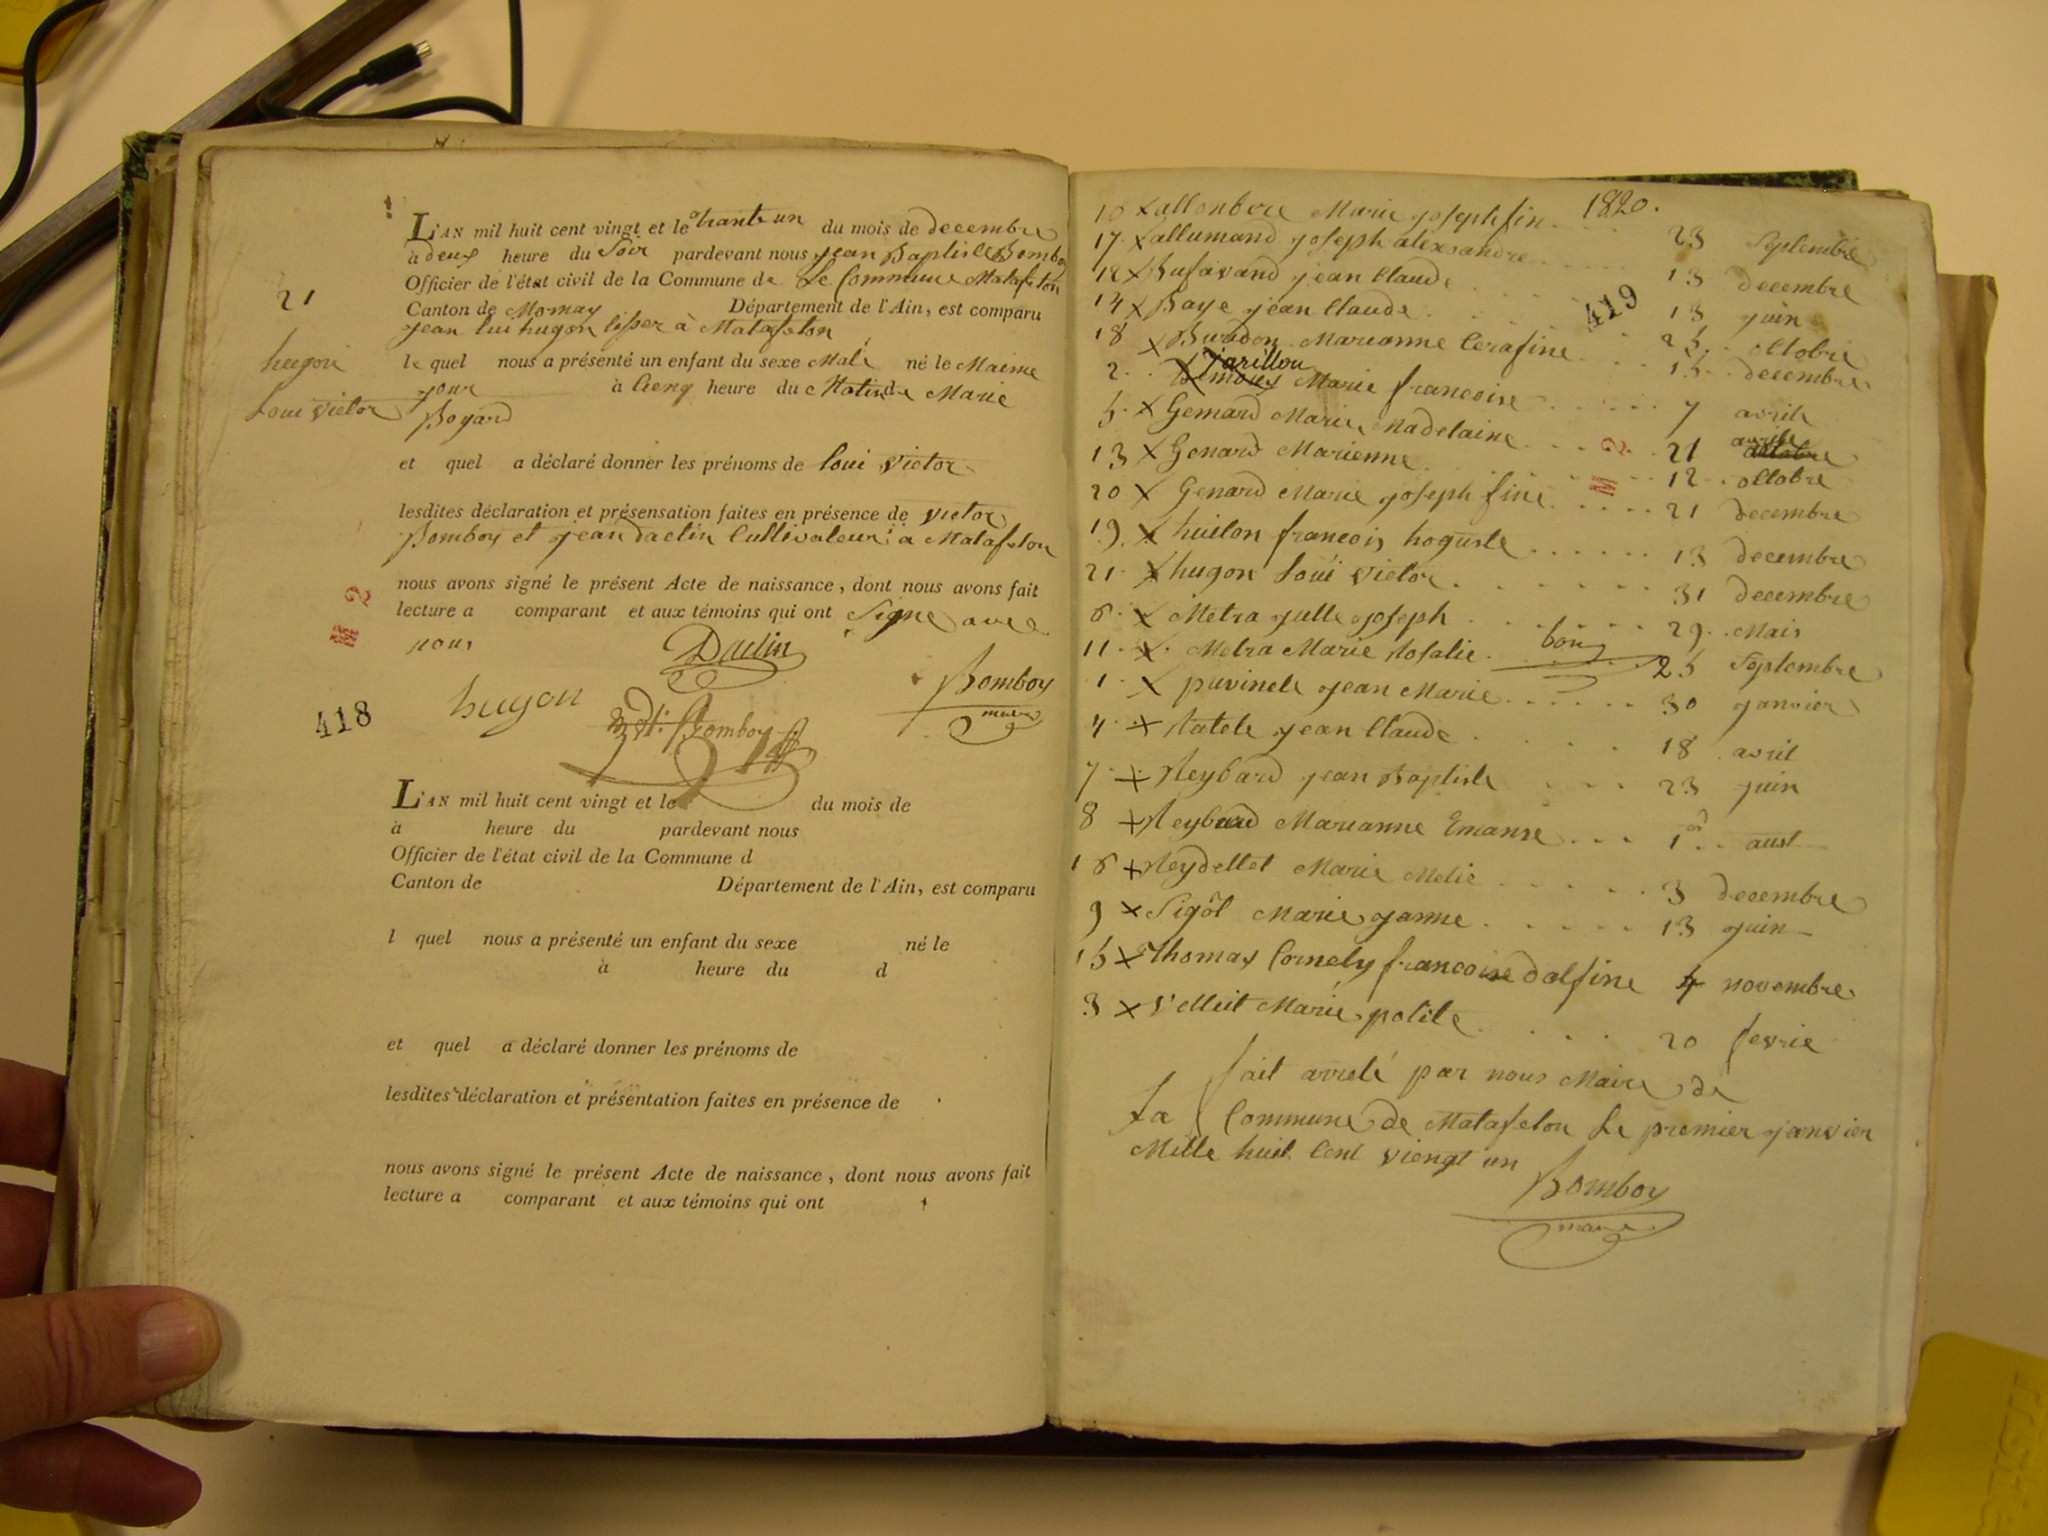 L'AN mil huit cent vingt et le trante un du mois de decembre
à deux heure du Soir pardevant nous jean Baptiste Bomboy
Officier de l'état civil de la Commune de Le Commune Matafelon
Canton de Mornay Département de l'Ain, est comparu
21
jean lui hugon tisser à Matafelon
hugon
le quel nous a présenté un enfant du sexe Male né le Maime
jour à Cienq heure du Matin de Marie
Loui victor
Bogard
et quel a déclaré donner les prénoms de loui victor
lesdites déclaration et présensation faites en présence de victor
Bomboy et jean daclin Cultivateur à Matafelon
nous avons signé le présent Acte de naissance, dont nous avons fait
lecture a comparant et aux témoins qui ont Signe avec
nous
M 2
Daclin
hugon
Bomboy
maire
Bomboy
418
L'AN mil huit cent vingt et le du mois de
à heure du pardevant nous
Officier de l'état civil de la Commune d
Canton de Département de l'Ain, est comparu
l quel nous a présenté un enfant du sexe né le
à heure du d
et quel a déclaré donner les prénoms de
lesdites déclaration et présentation faites en présence de
nous avons signé le présent Acte de naissance, dont nous avons fait
lecture a comparant et aux témoins qui ont
1820.
10 x allonbere Marie josephfin 23 Septembre
17 x allumand joseph alexsandre 13 decembre
12 x Bufavand jean Claude 13 juin
419
14 x Baye jean Claude 25 octobre
18 x Buvadon Marianne Cerafine 15 decembre
2 jarillou Marie francoise 7 avrile
5 x Gemard Marie Madelaine 21 avrile
13 x Gonard Marienne 12 octobre
M 2
20 x Genard Marie joseph fine 21 decembre
19 x huiton francois hoguste 13 decembre
21 x hugon Loui victor 31 decembre
6 x Metra julle joseph 29 Mais
11 x Metra Marie Rosalie bon 25 Septembre
1 x puvinele jean Marie 30 janvier
4 x Ratele jean Claude 18 avril
7 x Reybard jean Baptiste 23 juin
8 x Reybard Marianne Emanse 1er aust
16 x Reydellet Marie Melie 3 decembre
9 x Sigôt Marie janne 13 juin
15 x Thomas Cornely francoise dalfine 4 novembre
3 x Velluit Marie polite 20 fevrie
fait arreté par nous Maire de
La Commune de Matafelon Le premier janvier
Mille huit Cent viengt un
Bomboy
maire